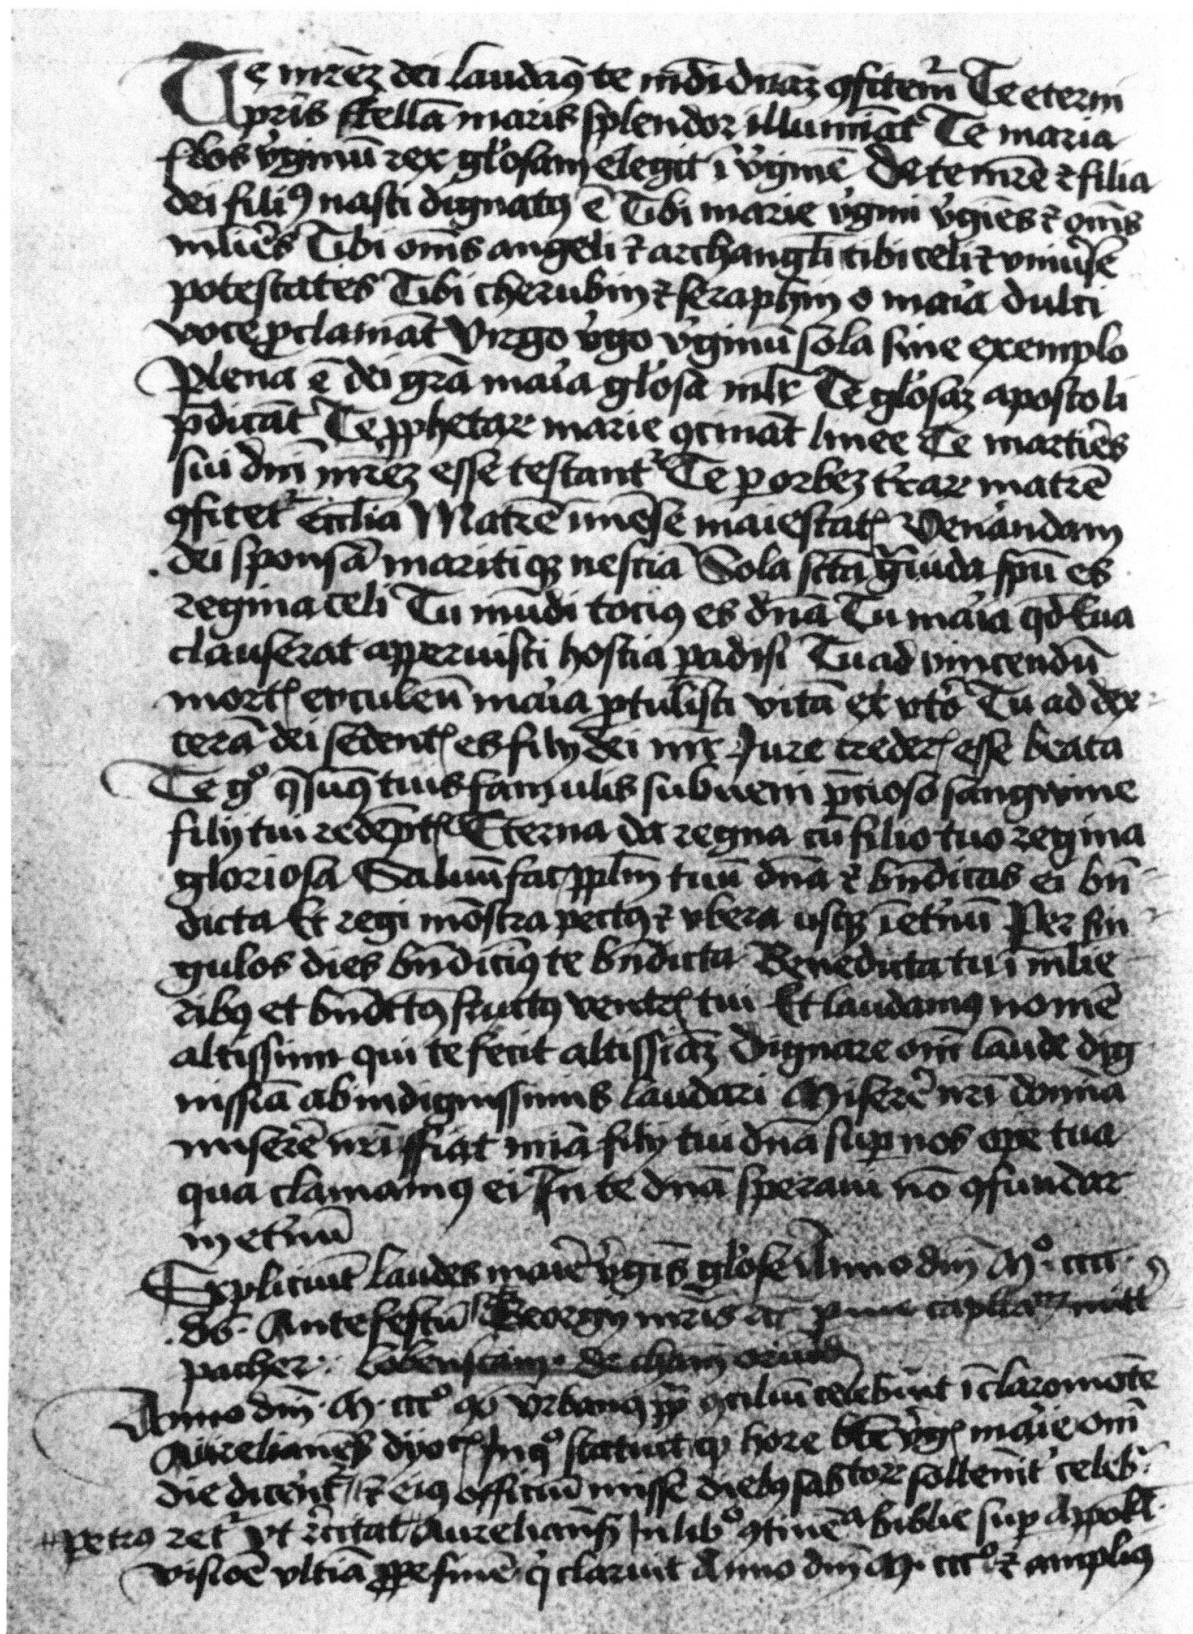 Te mrēz dei laudam9 te mūdi dnāz ꝯfitem̄ Te eterni
pris̄ stellā maris splendor illuminat Te maria
flos v̓ginū rex gl̓osam elegit ī v̓ginē De te mr̄e ⁊ filia
dei fili9 nasci dignat9 ē Tibi marie v̓gini v̓gies̄ ⁊ om̄s
mlieřs Tibi om̄s angeli ⁊ archangl̄i tibi celi ⁊ vniuse̓
potestates Tibi cherubin ⁊ seraphin o mai̓a dulci
voce ꝓclamāt Virgo v̓go v̓ginū sola sine exemplo
Plena ē dei gr̄a mai̓a gl̓osa ml̄r Te gl̓osaz apostoli
p̄dicāt Te ꝓphetar marie ꝯcināt linee Te martire̓s
sui dn̄i mr̄ez esse testant̓ Te per orbez tr̓rar matrē
ꝯfitet̓ Eccl̄ia Matrē īmēse maiestat Ven̓andam
dei sponsā maritiqz nesciā Sola sctā gͣuida spū es
regina celi Tu mūdi toci9 es dn̄a Tu mai̓a qd̄ Eua
clauserat apperuisti hostia padisi Tu ad vincendū
mort eculeū mai̓a ꝓtulisti vitā et Tu ad dex
terā dei sedent es filij dei mr̄ Jure creder esse beata
Te gͦ qs̄um9 tuis famulis subueni p̄cioso sangwine
filij tui redēpt Eterna da regna cū filio tuo regina
gloriosa Saluū fac ppl̄m tuū dn̄a ⁊ bn̄dicas ei bn̄
dicta Et regi mōstra pect9 ⁊ vbera usqz ī et̓nū Per sin
gulos dies bn̄dicim9 te bn̄dicta Benedicta tu ī mlie
rib9 et bn̄dct9 fruct9 ventr tui Et laudam9 nomē
altissimi qui te fecit altissiāz Dignare om̄ laude dig
nissiā ab indignissimis laudari Miserēr nr̄i domīa
miserēr nr̄i ffiat mi̅a filij tui dn̄a sup nos ope tua
qua clamam9 ei In te dn̄a speraui nō ꝯfundar
in et̓nū
Expliciūt laudes mai̓e v̓gis̄ gl̓ose Anno dn̄i Mͦ cccc
86 Ante festū Georgij mr̄is ac
pacher
Anno dn̄i M ccc Vrban9 pp ꝯciliū celebr̄unt ī claromōte
statuit qͣ hore bt̄e v̓g mai̓e om̄i
die dicen̄t ⁊ ei9 officiū misse dieb9 sabtor sollenit̓ celebr̓
petr9 vt r̓citat biblie sup appoll
visiōe vltiā ꝓpe finē q̓ claruit Anno dn̄i M ccc ⁊ ampli9